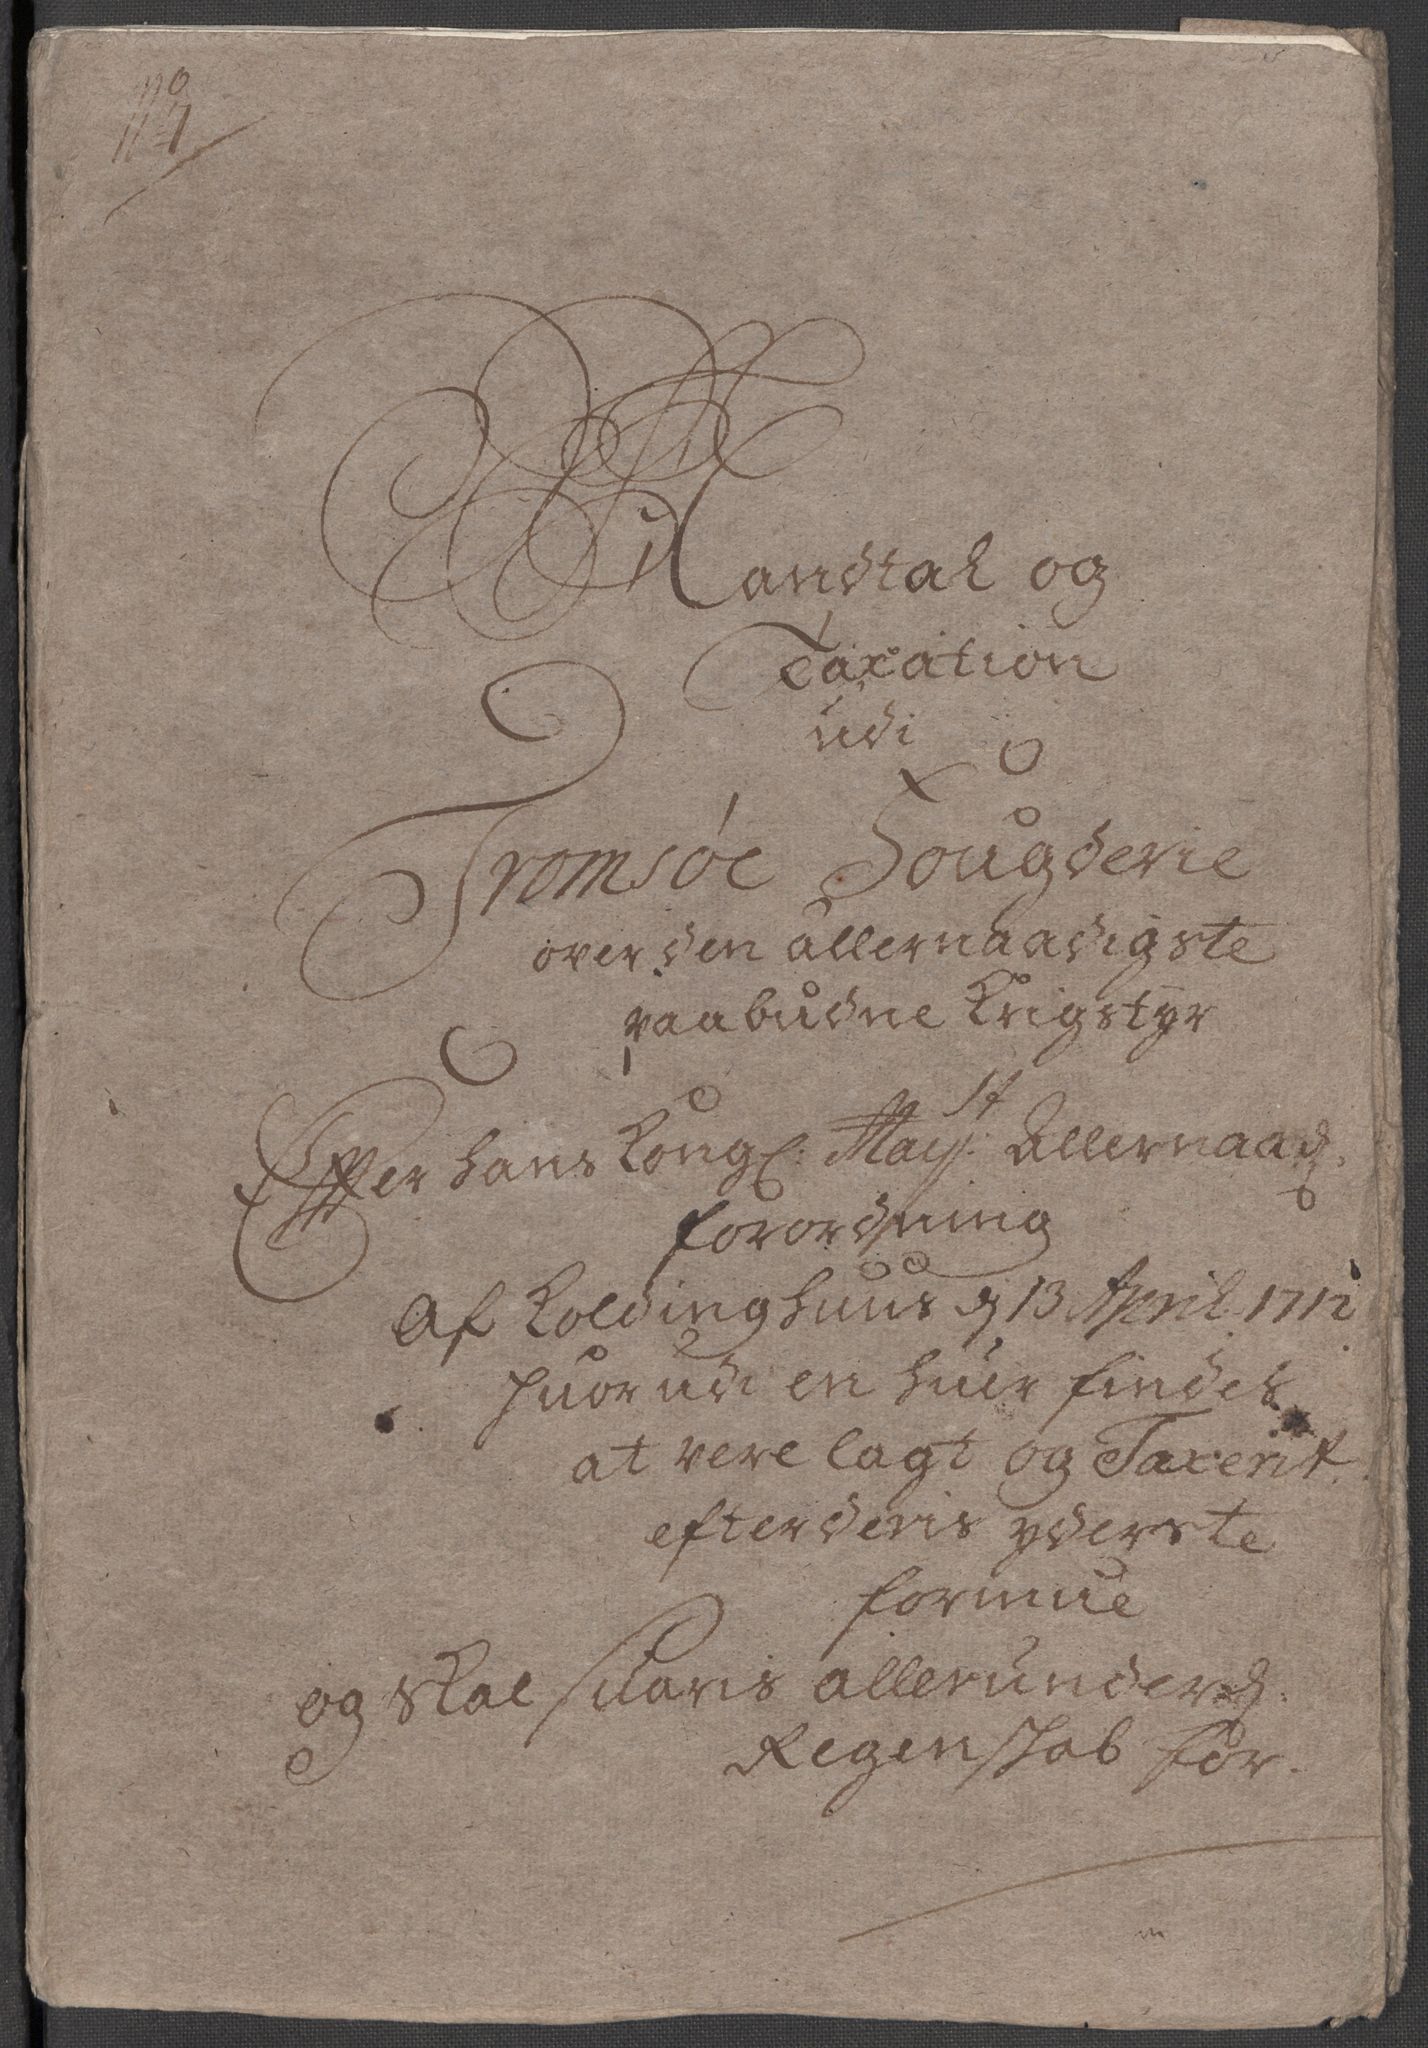 No 7
Mandtal og
Taxation
udi
Tromsøe Fougderie
over den allernaadigste
paabudne Krigstyr
Effter hans Kongl: Maysts: Allernaad:
forordning
Af Koldinghuus d 13 April 1712
huorudi en huer findes
at vere lagt og Taxerit
efter deris yderste
formue
og skal suaris allerunderd:
Regenskab for.